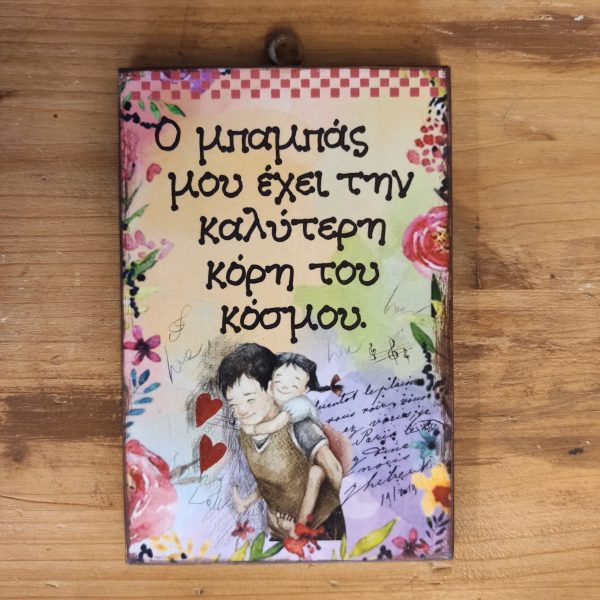 Ο μπαμπάς
μου έχει την
καλύτερη
κόρη του
κόσμου.